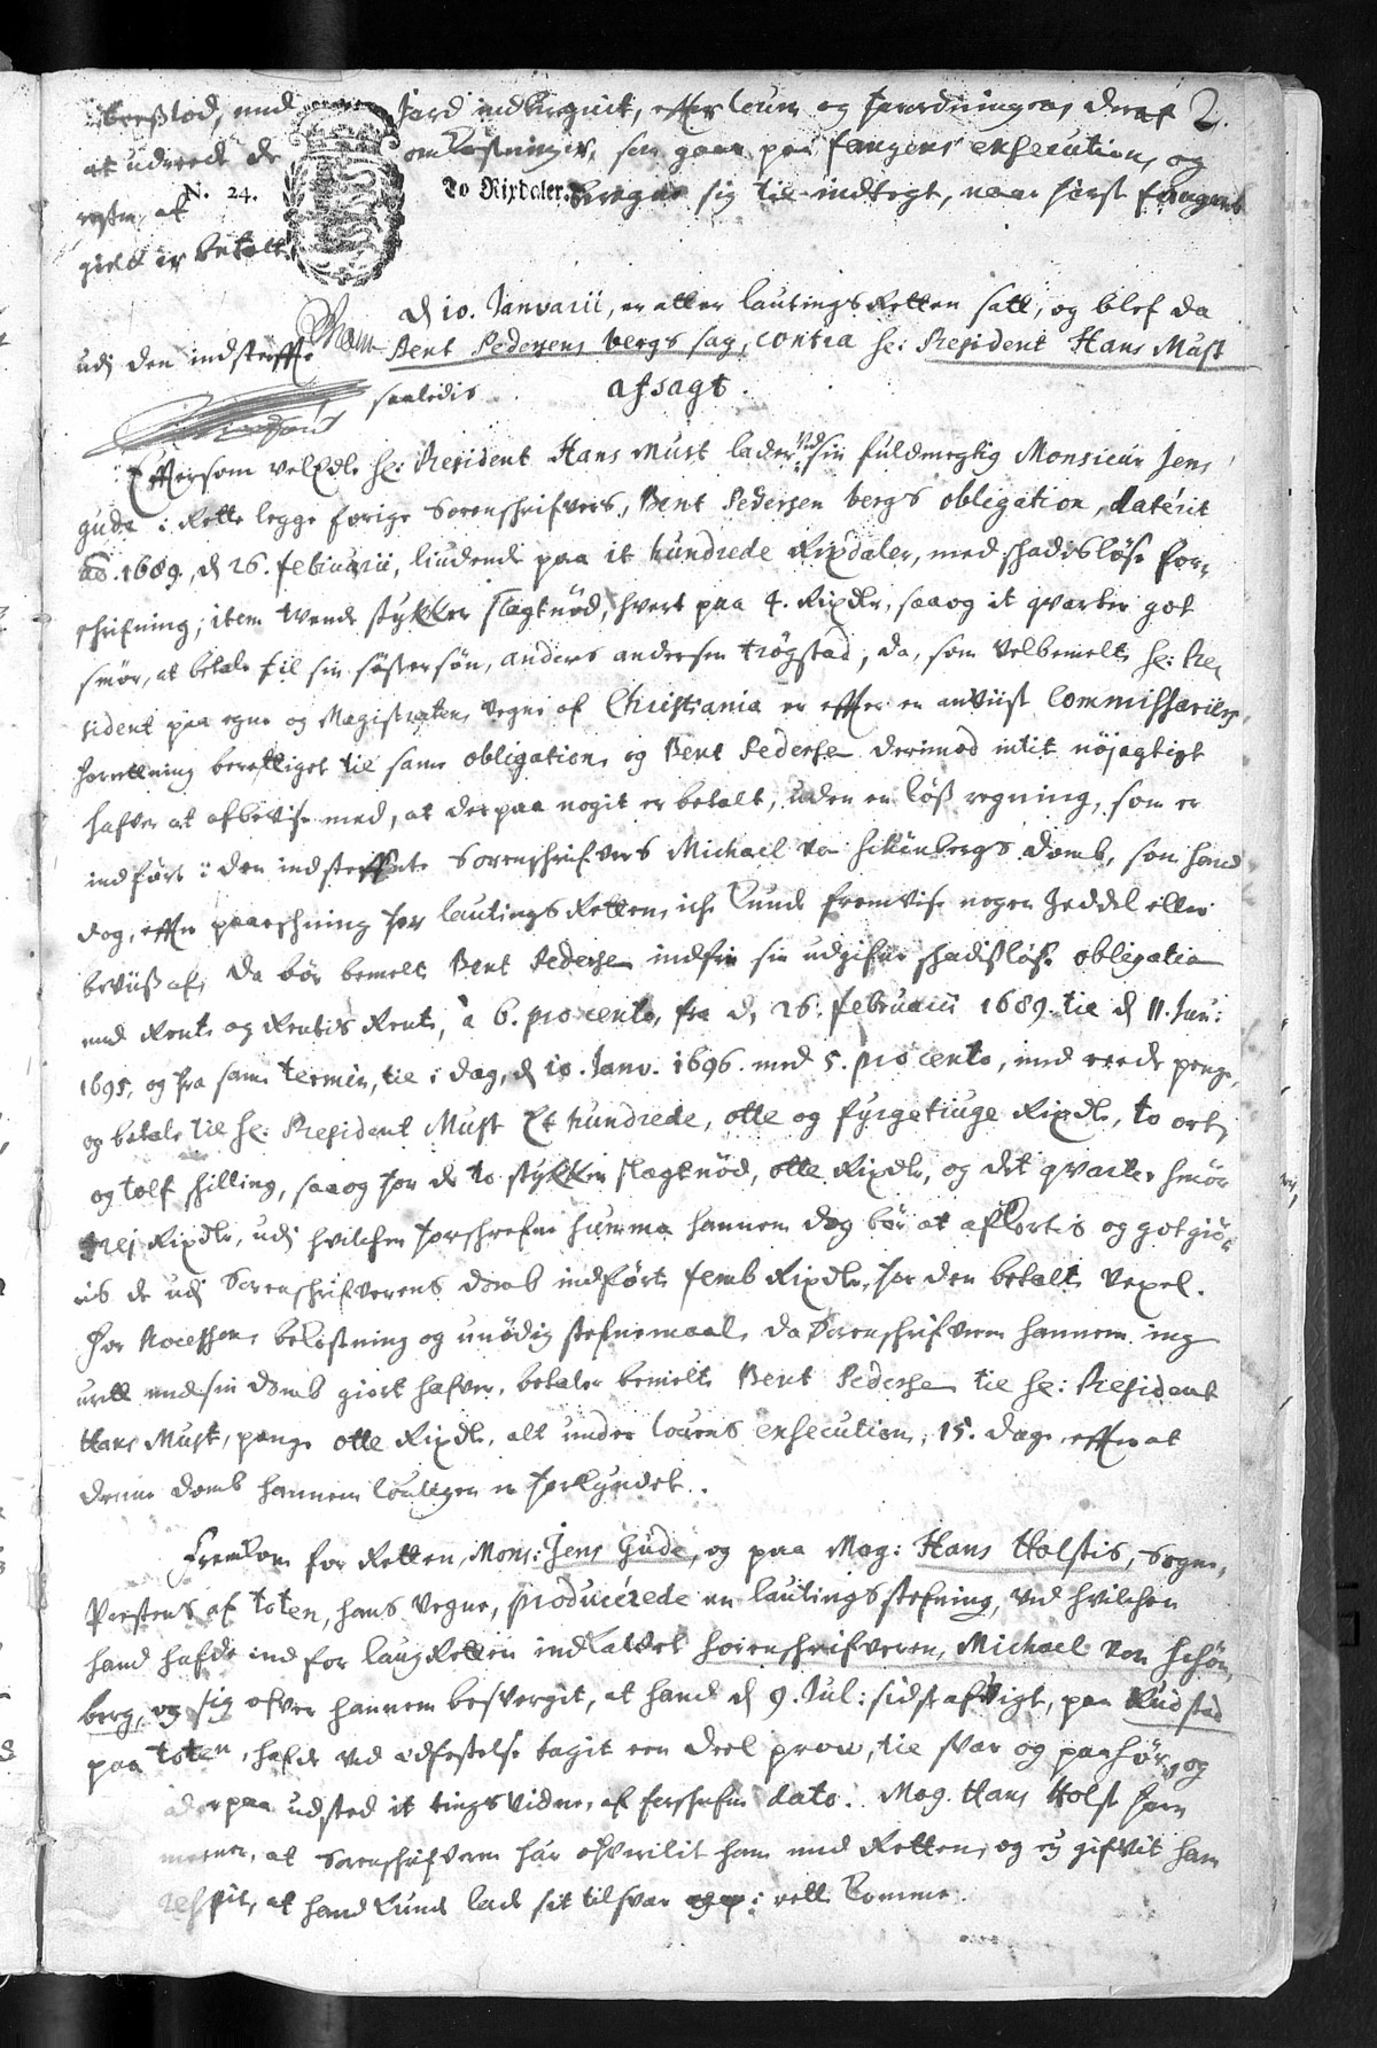 2.
Jord indkregnit, efter louen og forordningen, deraf
omkostninger, som gaar paa fangens exsecution, og
N. 24. To Rixdaler. beregne sig til indtegt, naar først fangens
at udrede de
resten, at
gield er betalt
udj den indsteffte
d 10. Januarii, er atter lautings Retten satt, og blef da
Bent Pedersens bergs sag, contra hr: President Hans Must
saaledis afsagt.
Eftersom velEdle hr: President Hans Must lader ved sin fuldmegtig Monsieur Jens
gude i Rette legge forige Sorenschrifvers, Bent Pedersen bergs obligation, daterit
Ao. 1689, d 26. februarii, liudende paa it hundrede Rixdaler, med skadisløse for-
schrifning; item tvende stykker slagtnød, hvert paa 4. Rixdlr, saa og it qvarter got
smør, at betale til sin søstersøn, anders andersen trøgstad, da, som velbemelte hr: Pre
sident paa egne og Magistratens vegne af Christiania er efter en anviist Commissariers
forretning berettiget til samme obligation, og Bent Pedersen derimod intit nøjagtigt
hafver at afbevise med, at derpaa nogit er betalt, uden en løß regning, som er
indført i den indsteffnte Sorenschrifvers Michael von Schönbergs domb, som hand
dog, efter paaeschning for lautings Retten, iche kunde fremvise nogen Zeddel eller
beviiß af, Da bør bemelte Bent Pedersen indfrie sin udgifne schadisløse obligation
med Rente og Rentis Rente, à 6. pro cento, fra d, 26. februarii 1689. til d 11. Jun:
1695, og fra samme termin, til i dag, d 10. Janv. 1696. med 5. pro cento, med rede penge,
og betale til hr: President Must Et hundrede, otte og fyrgetiuge Rixdlr, to ort,
og tolf schilling, saa og for de to stykker slagtnød, otte Rixdlr, og det qvarter smør
trej Rixdlr, udj hvilchen forschrefne summa hannem dog bør at afkortis og gotgiø-
ris de udj Sorenschrifverens domb indførte femb Rixdlr, for den betalte vexel.
For Processens bekostning og unødig stefnemaal, da Sorenschrifveren hannem ing
urett med sin domb giort hafver, betaler bemelte Bent Pedersen til hr: President
Hans Must, penge otte Rixdlr, alt under louens exsecution, 15. dage, efter at
denne domb hannem loulligen er forkyndet.
Fremkom for Retten, Mons: Jens Gude, og paa Mag: Hans Holstis, Sogne-
Prestens af toten, hans vegne, producerede en lautings stefning, ved hvilchen
hand hafde ind for laugRetten indkaldet Sorenschrifveren, Michael von Schön-
berg, og sig ofver hannem besvergit, at hand d 9. Jul: sidst afvigt, paa Rudstad
paa toten, hafde ved edfestelse tagit een deel prov, til svar og paahør, og
derpaa udsted it tingsvidne, af forschrefne dato. Mag. Hans Holst for
meener, at Sorenschrifveren har ofverilit ham med Retten, og ej gifvit ham
respit, at hand kunde lade sit tilsvar i rette komme.